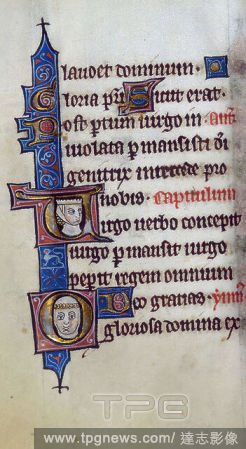 laudet dominum.
Gloria pri Sicut erat.
Post partum uirgo in Ant
uiolata pmansisti dei
genitrix intercede pro
nobis. Capitulum
Uirgo uerbo concepit
uirgo pmansit uirgo
peperit regem omnium
Deo gratias. ymnus
O gloriosa domina ex
TPG
www.tpgnews.com/達志影像